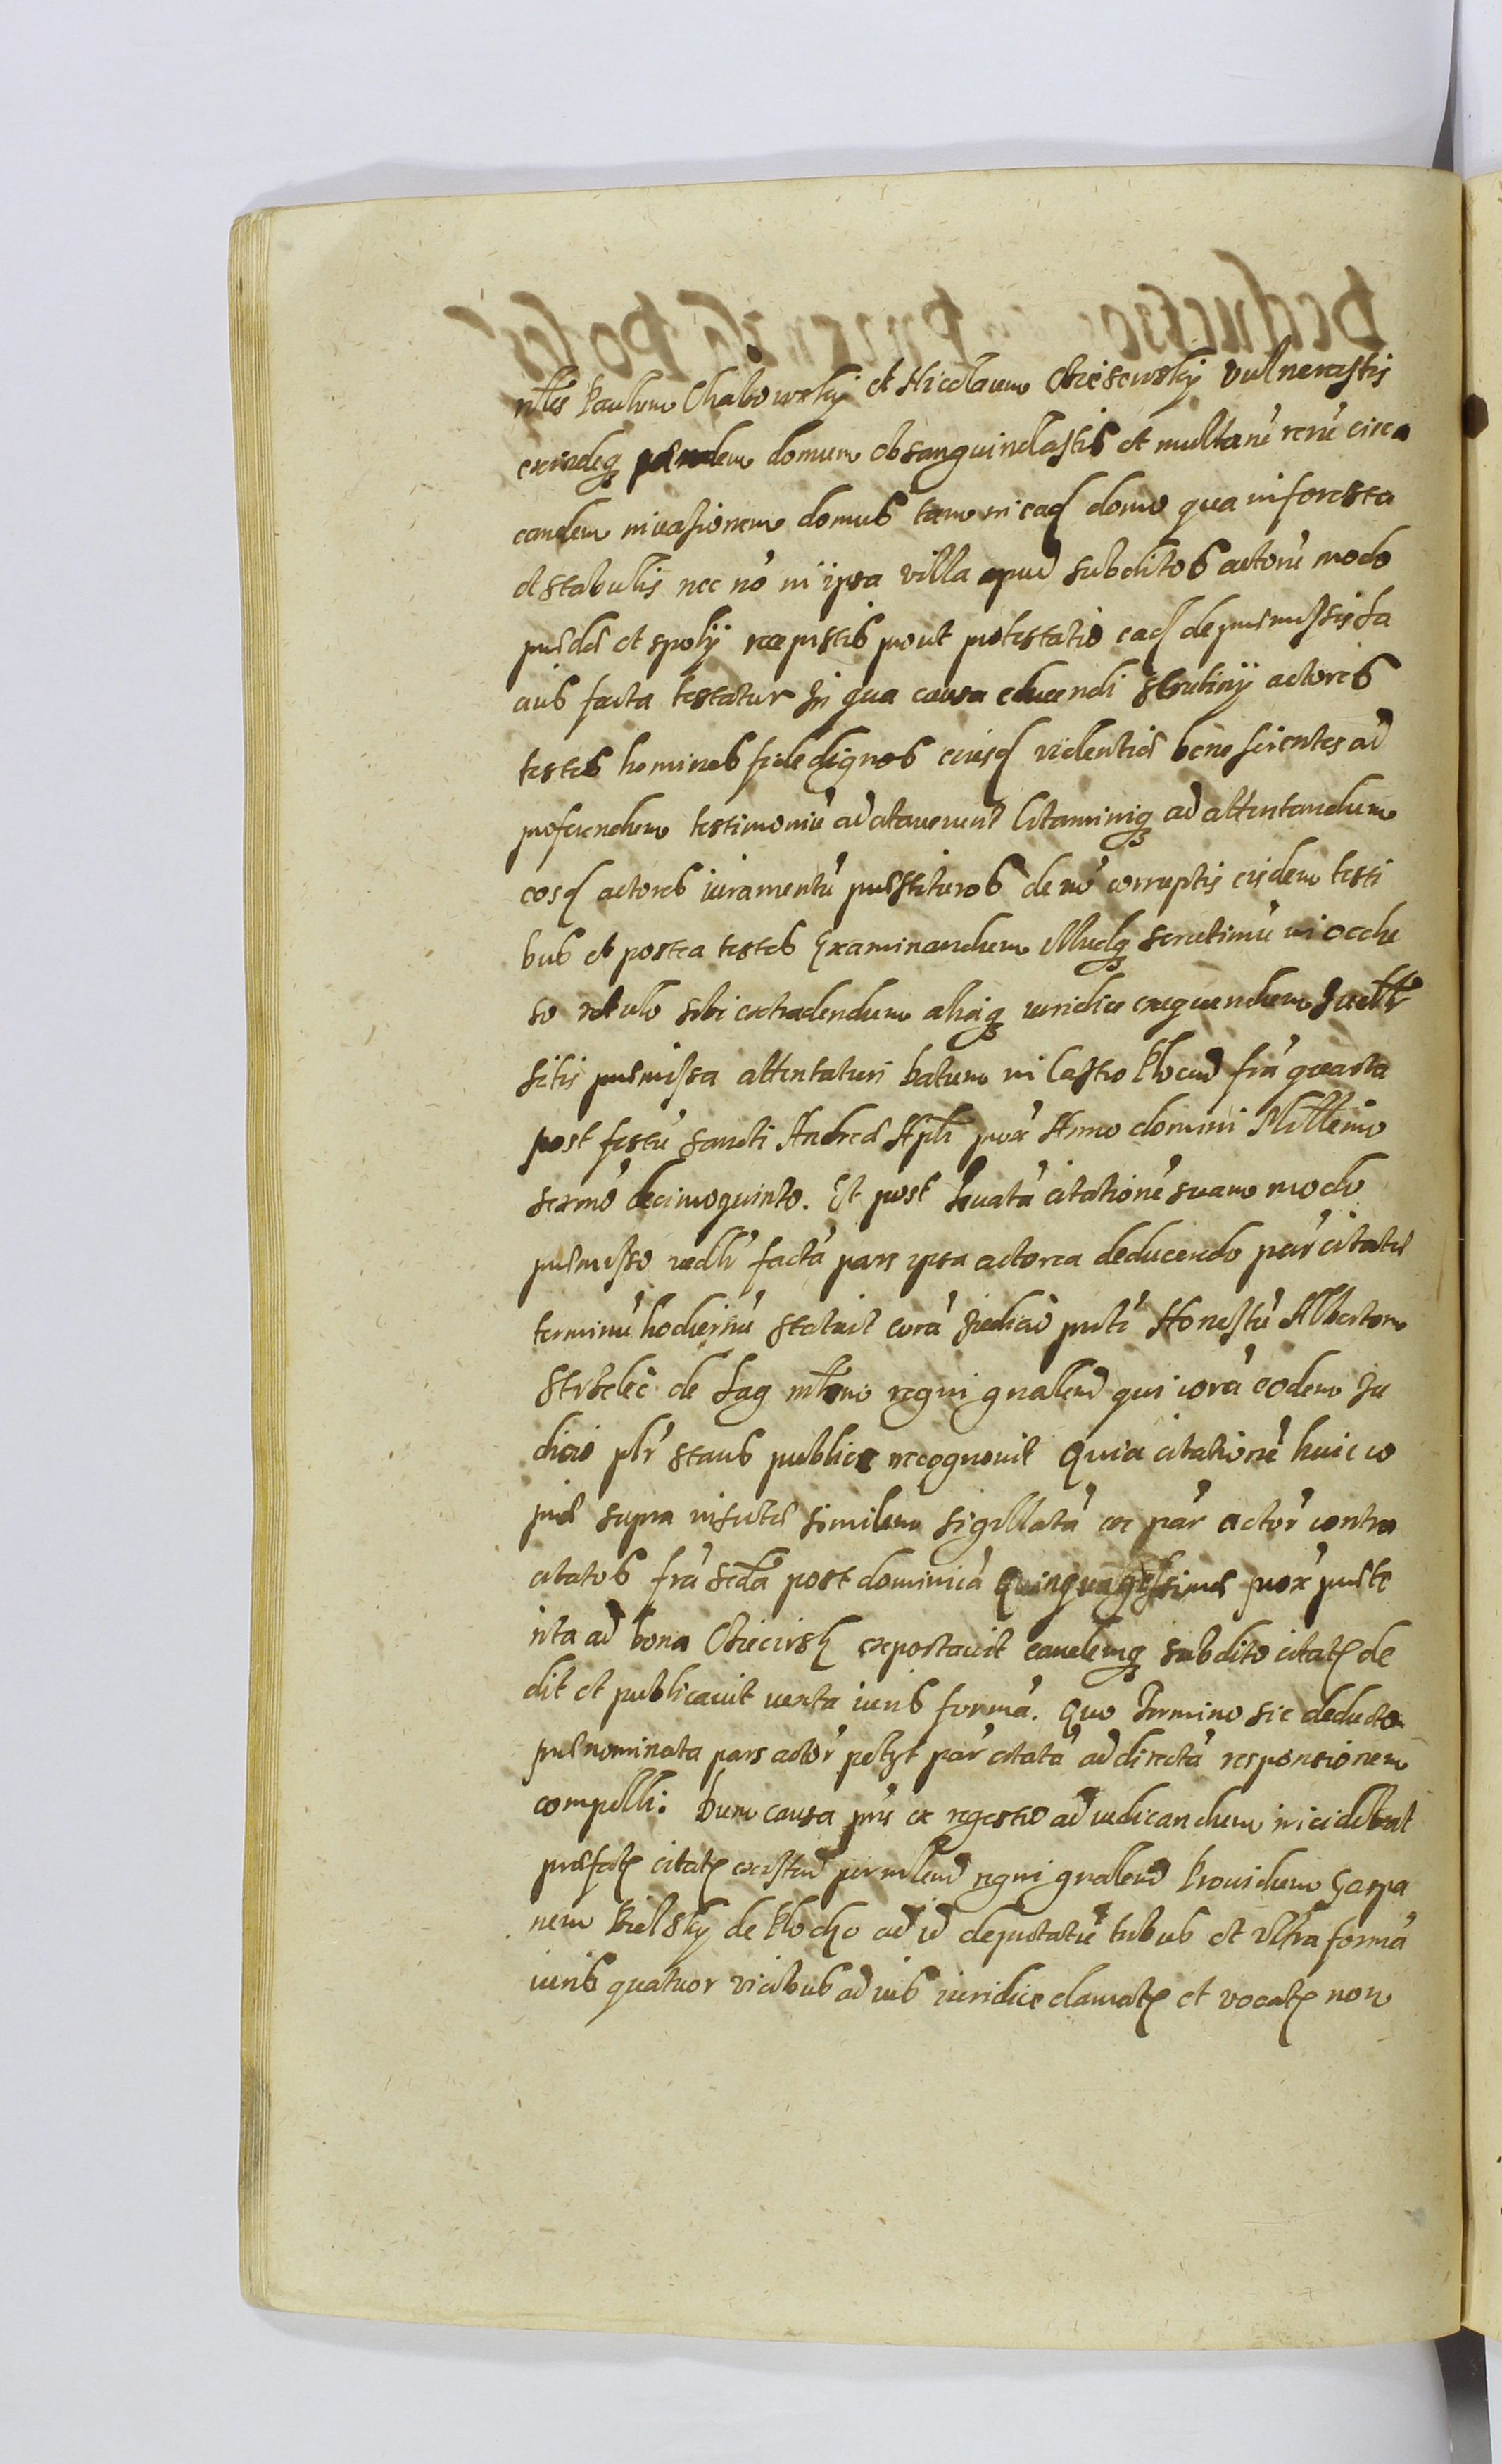 nbles Paulum Chabowsky et Nicolaum Obiesewsky vulnerastis
exindeq3 eandem domum obsanguinolastis et multarũ rerũ circa
eandem inuasionem domus tam in ead domo qua in foresta
et stabulis nec nõ in ipsa villa apud subditos actorũ modo
prędę et spolÿ recepistis prout protestatio ead de pręmissis la
cius facta testatur In qua causa educendi scrutinÿ actores
testes homines fidedignos eiusd violentię bene scientes ad
proferendum testimoniũ adcitauerunt Citaminiq3 ad attentandum
eosd actores iuramentũ pręstituros de nõ corruptis eisdem testi
bus et postea testes examinandum illudq3 scrutiniũ in occlu
so rotulo sibi extradendum aliaq3 iuridice exequendum
sitis pręmissa attentaturi Datum in Castro Plocen fria quarta
post festũ sancti Andreę Apli prox Anno domini Millmo
sexmõ decimoquinto. Et post leuatã citationẽ suam modo
pręmisso factã pars ipsa actorea deducendo par citatę
terminũ hodiernũ statuit corã Iudicio pnti Honestũ Albertum
de Lag mlem regni gnalem qui corã eodem Iu
dicio plr stans publice recognouit Quia citationẽ huic co
pię supra insertę similem sigillatã ex par actor contra
citatos fria scda post dominicã Quinquagessimę prox prete
rita ad bona exportauit eandemq3 subdito citat de
dit et publicauit iuxta iuris formã. Quo Termino sic deducto
pręnominata pars actor petyt par citatã ad directã responsionem
compelli. Dum causa pns ex regestro ad iudicandum incidebat
pręfat citat existen per mlem regni gnalem Prouidum Gaspa
rem Bielsky de Plocko ad id deputatũ tribus et vltra formã
iuris quatuor vicibus ad ius iuridice clamat et vocat non